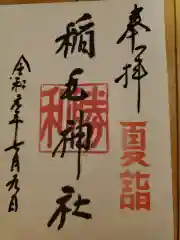 奉拝
夏詣
稲毛神社
勝利
令和元年七月九日